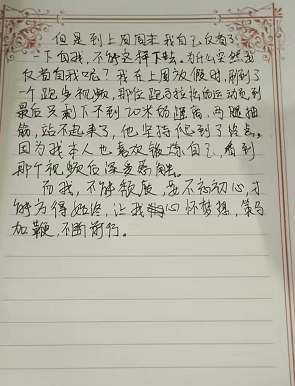 但是到上周周末我自己反省了
一下自我，不能这样下去。为什么突然我
反省自我呢？我在上周放假时，刷到了
一个跑步视频，那位跑马拉松的运动员到
最后只剩下不到20米的距离，两腿抽
筋，站不起来了，他坚持爬到了终点。
因为我本人也喜欢锻炼自己，看到
那个视频后深受感触。
而我，不能颓废，要不忘初心，才
能方得始终，让我心怀梦想，策马
加鞭，不断前行。